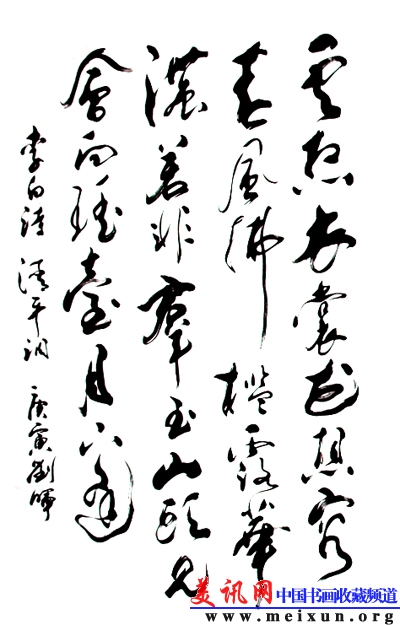 云想衣裳花想容
春風拂槛露華
濃若非羣玉山頭見
會向瑶臺月下逢
李白詩 清平调 庚寅劉暉
美讯网 中国书画收藏频道
www.meixun.org